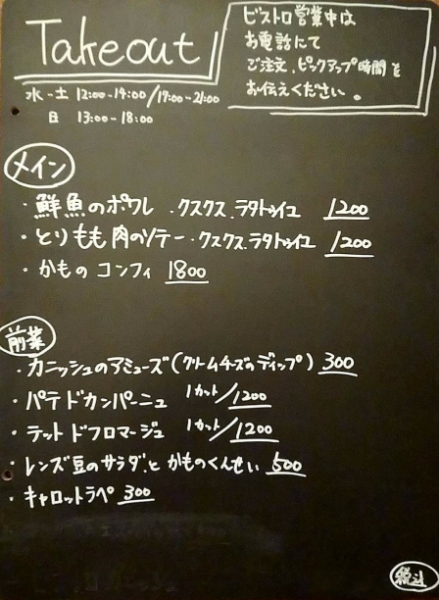 Takeout
ビストロ営業中は
お電話にて
ご注文、ピックアップ時間を
お伝えください。
水-土 12:00-14:00/17:00-21:00
日 13:00-18:00
メイン
・鮮魚のポワレ ・クスクス、ラタトゥイユ 1200
・とりもも肉のソテー・クスクス、ラタトゥイユ 1200
・かもの コンフィ 1800
前菜
・カニッシュのアミューズ(クリームチーズのディップ) 300
・パテ ドカンパーニュ 1カット/1200
・テット ドフロマージュ 1カット/1200
・レンズ豆のサラダ、と かものくんせい 500
・キャロットラペ 300
税込